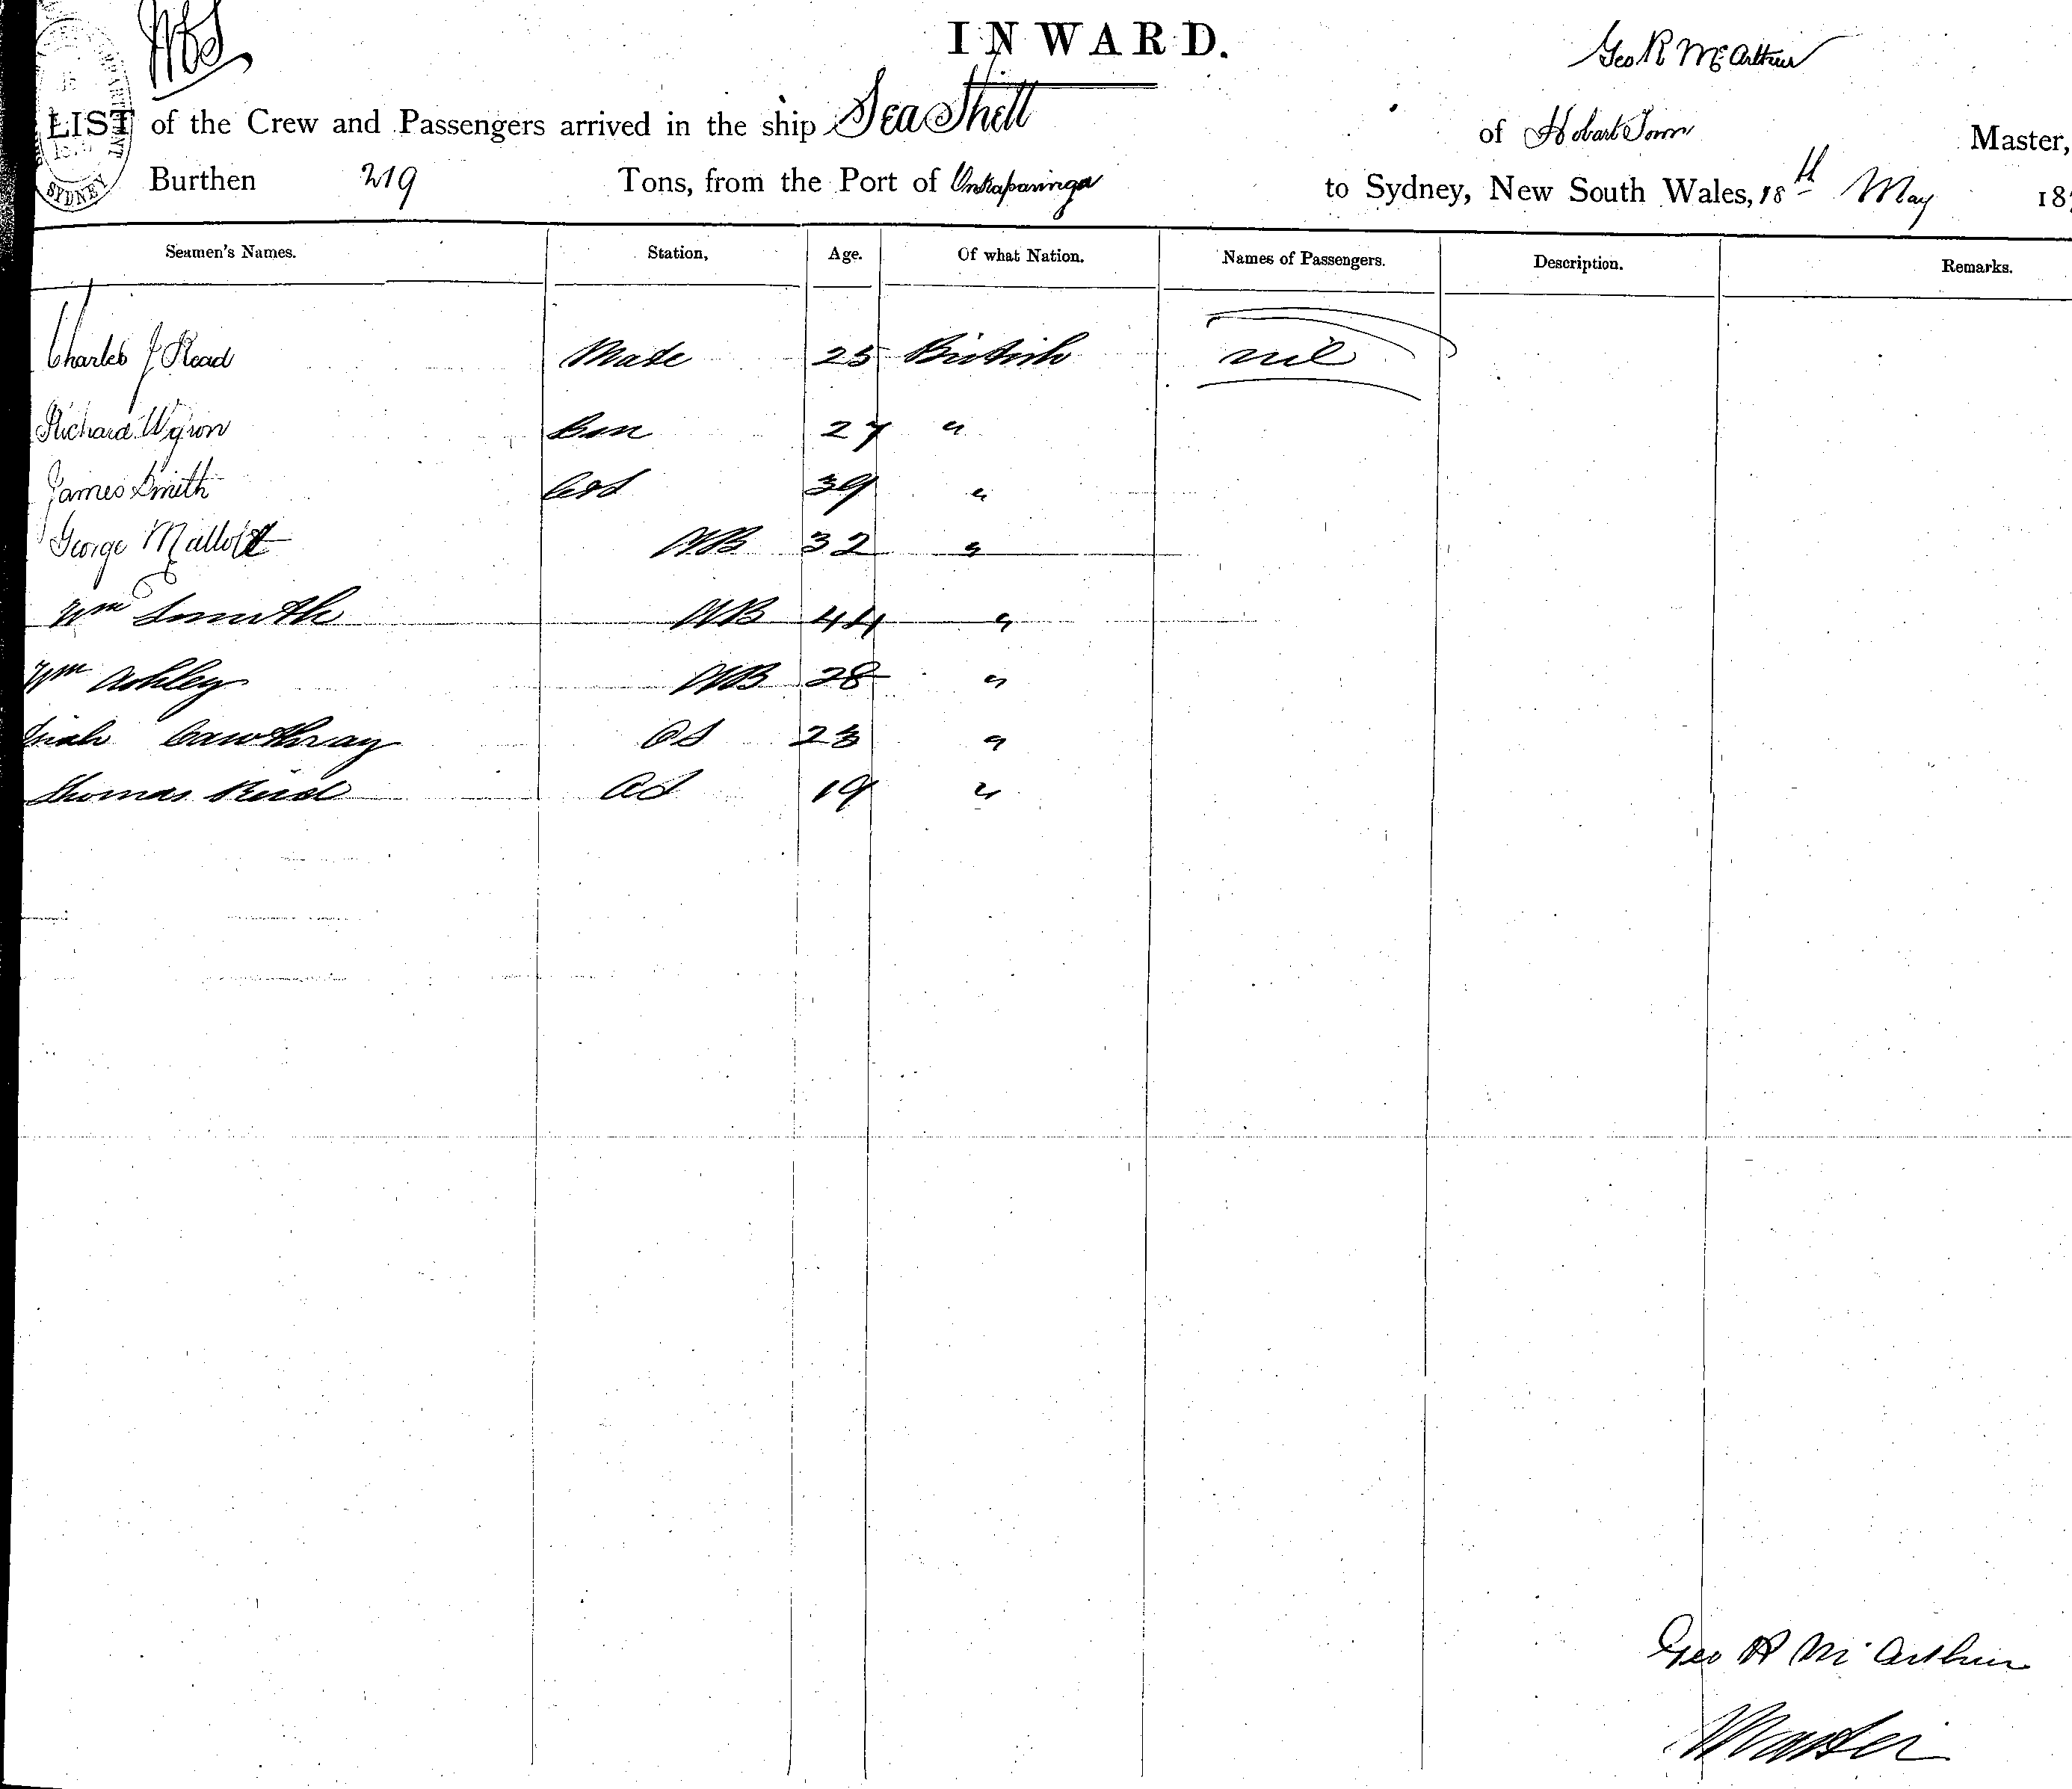 INWARD.
Geo R McArthur
LIST of the Crew and Passengers arrived in the ship Sea Shell of Hobart Town Master,
Burthen 219 Tons, from the Port of Onkaparinga to Sydney, New South Wales, 18th May 18
SYDNEY
Seamen's Names. Station, Age. Of what Nation. Names of Passengers. Description. Remarks.
Charles J Read Mate 25 British nil
Richard 27 "
James Smith 39 "
George AB 32 "
Wm Smith AB 44 "
Wm Ashley AB 28 "
Cawthray OS 23 "
Thomas Reid OS 19 "
Geo R McArthur
Master